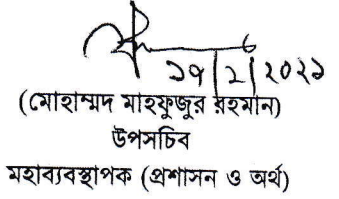 ১৭/২/২০২১
(মোহাম্মদ মাহফুজুর রহমান)
উপসচিব
মহাব্যবস্থাপক (প্রশাসন ও অর্থ)